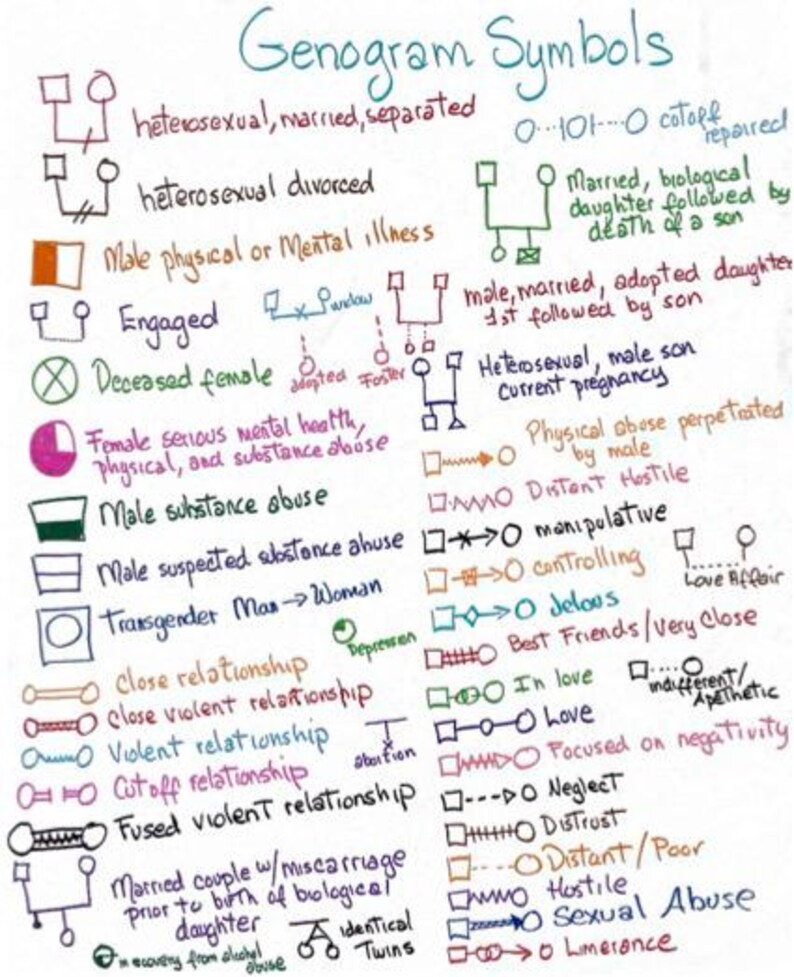 Genogram Symbols
heterosexual, married, separated
heterosexual divorced
Male physical or Mental illness
Engaged
widow
Deceased female
adopted
Foster
Female serious mental health,
physical, and substance abuse
Male substance abuse
Male suspected substance abuse
Transgender Man → Woman
Depression
Close relationship
Close violent relationship
Violent relationship
abortion
Cutoff relationship
Fused violent relationship
Married couple w/miscarriage
prior to birth of biological
daughter
in recovery from alcohol
abuse
identical
Twins
cutoff
repaired
Married, biological
daughter followed by
death of a son
male, married, adopted daughter
1st followed by son
Heterosexual, male son
current pregnancy
Physical abuse perpetrated
by male
Distant Hostile
manipulative
controlling
Love Affair
Jelous
Best Friends/Very Close
In love
indifferent/
Apethetic
Love
Focused on negativity
Neglect
Distrust
Distant/Poor
Hostile
Sexual Abuse
Limerance